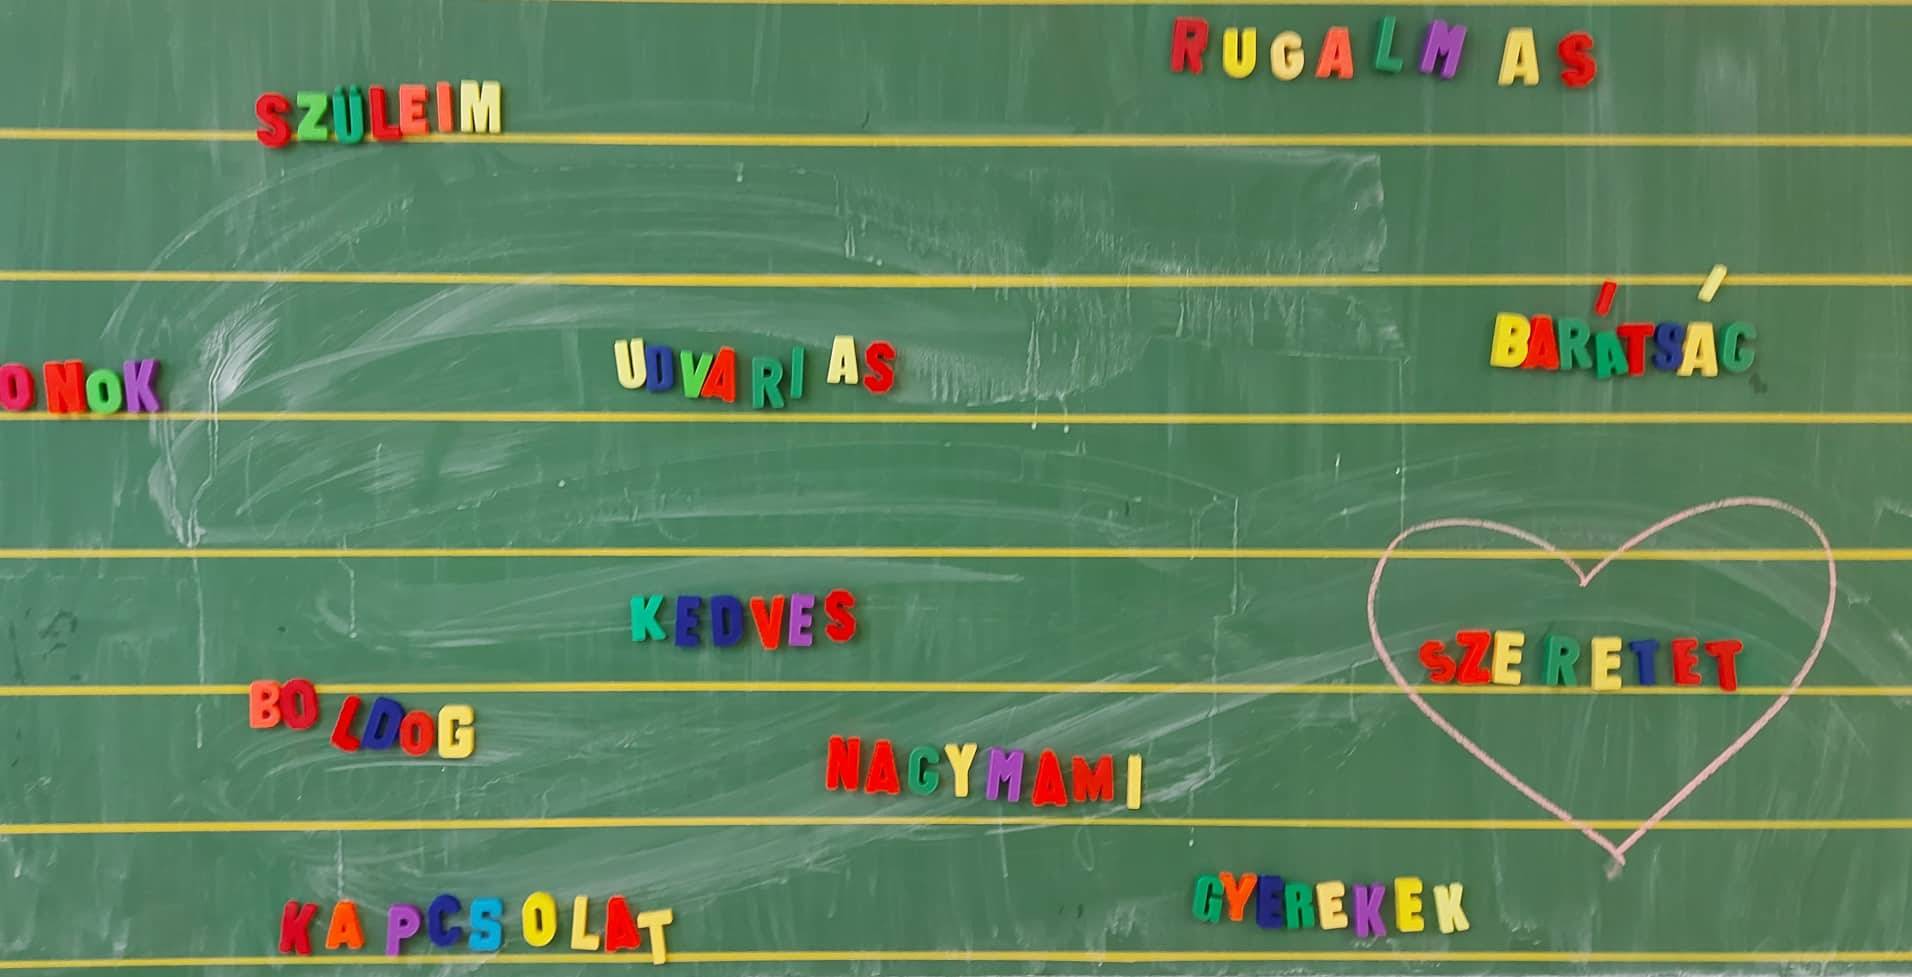 RUGALMAS
SZÜLEIM
ONOK UDVARIAS BARÁTSÁG
KEDVES
SZERETET
BOLDOG
NAGYMAMI
KAPCSOLAT GYEREKEK